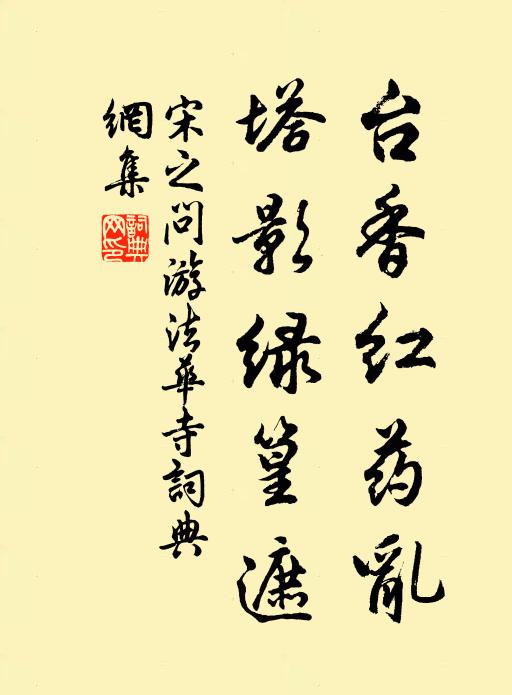 台香红药亂
塔影绿篁遮
宋之问游法華寺詞典
網集
詞典網印